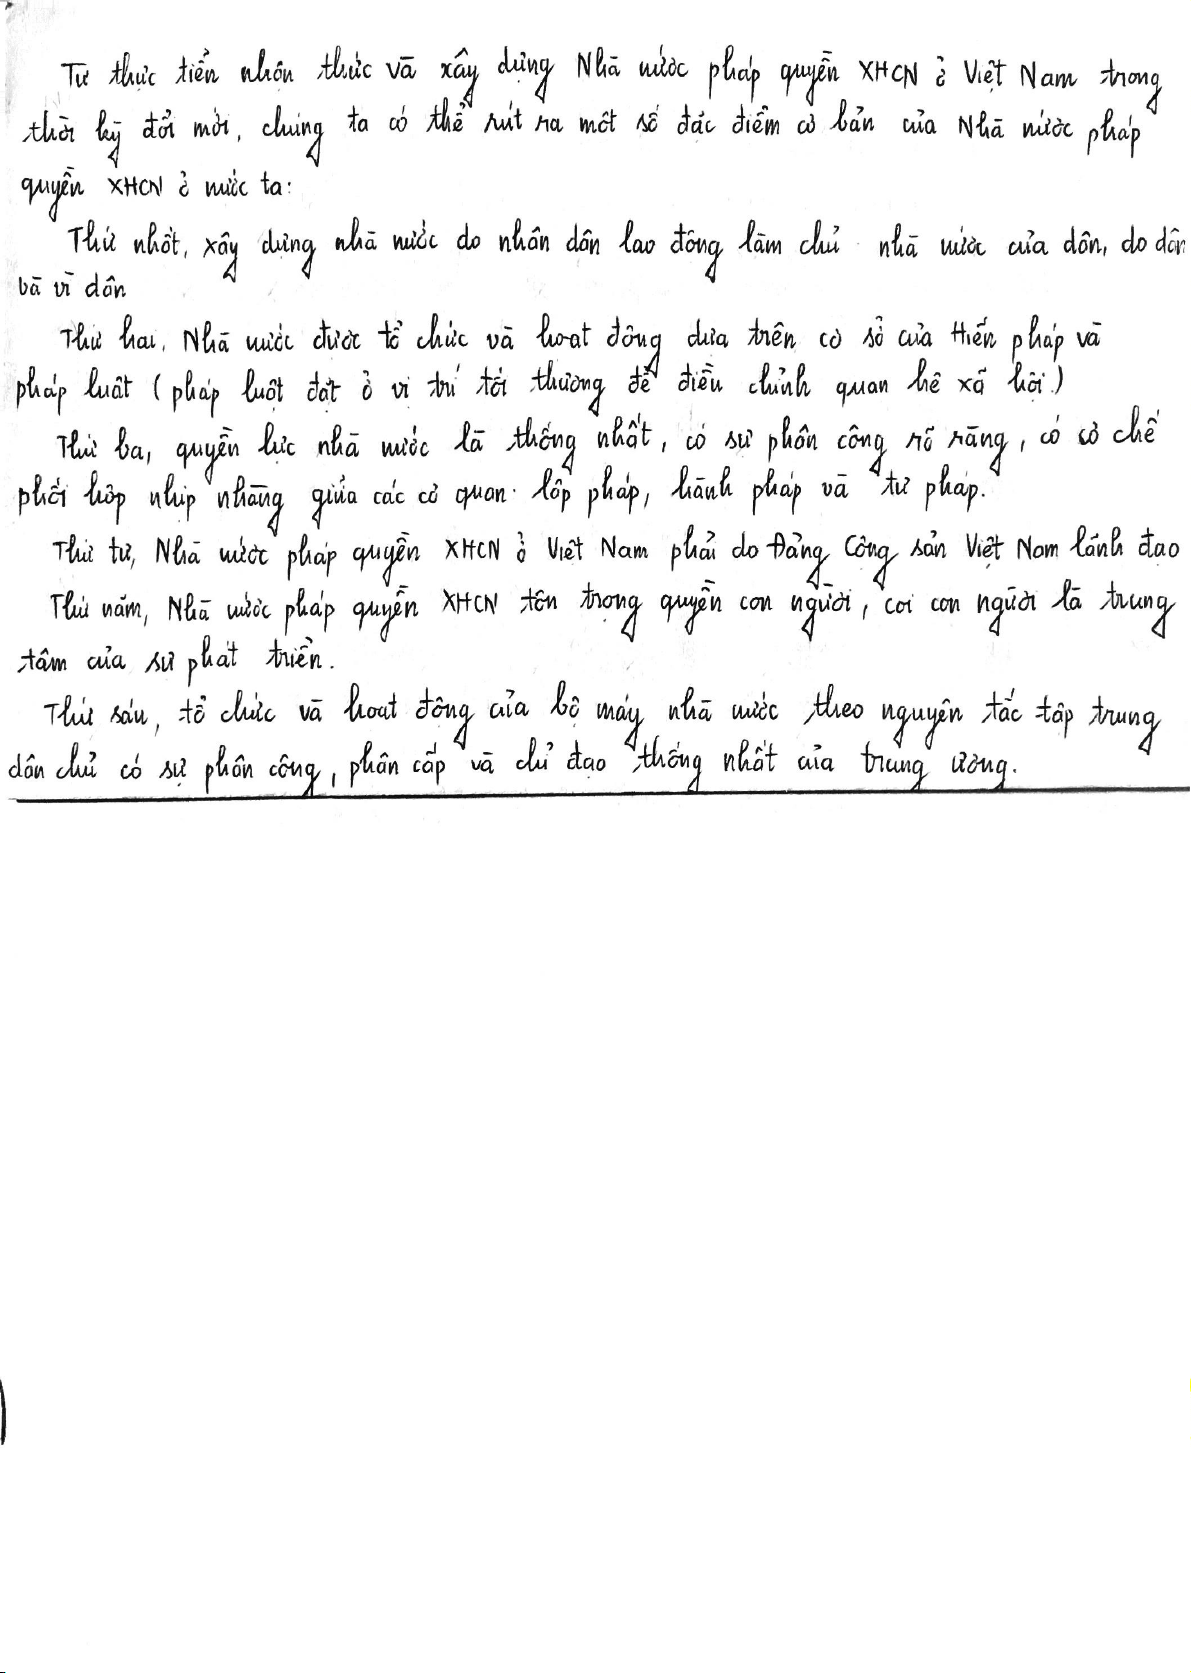 Từ thực tiễn nhận thức và xây dựng Nhà nước pháp quyền XHCN ở Việt Nam trong
thời kỳ đổi mới, chúng ta có thể rút ra một số đặc điểm cơ bản của Nhà nước pháp
quyền XHCN ở nước ta:
Thứ nhất, xây dựng nhà nước do nhân dân lao động làm chủ. nhà nước của dân, do dân
và vì dân
Thứ hai, Nhà nước được tổ chức và hoạt động dựa trên cơ sở của Hiến pháp và
pháp luật (pháp luật đặt ở vị trí tối thượng để điều chỉnh quan hệ xã hội.)
Thứ ba, quyền lực nhà nước là thống nhất, có sự phân công rõ ràng, có cơ chế
phối hợp nhịp nhàng giữa các cơ quan. lập pháp, hành pháp và tư pháp.
Thứ tư, Nhà nước pháp quyền XHCN ở Việt Nam phải do Đảng Cộng sản Việt Nam lãnh đạo
Thứ năm, Nhà nước pháp quyền XHCN tôn trọng quyền con người, coi con người là trung
tâm của sự phát triển.
Thứ sáu, tổ chức và hoạt động của bộ máy nhà nước theo nguyên tắc tập trung
dân chủ có sự phân công, phân cấp và chỉ đạo thống nhất của trung ương.